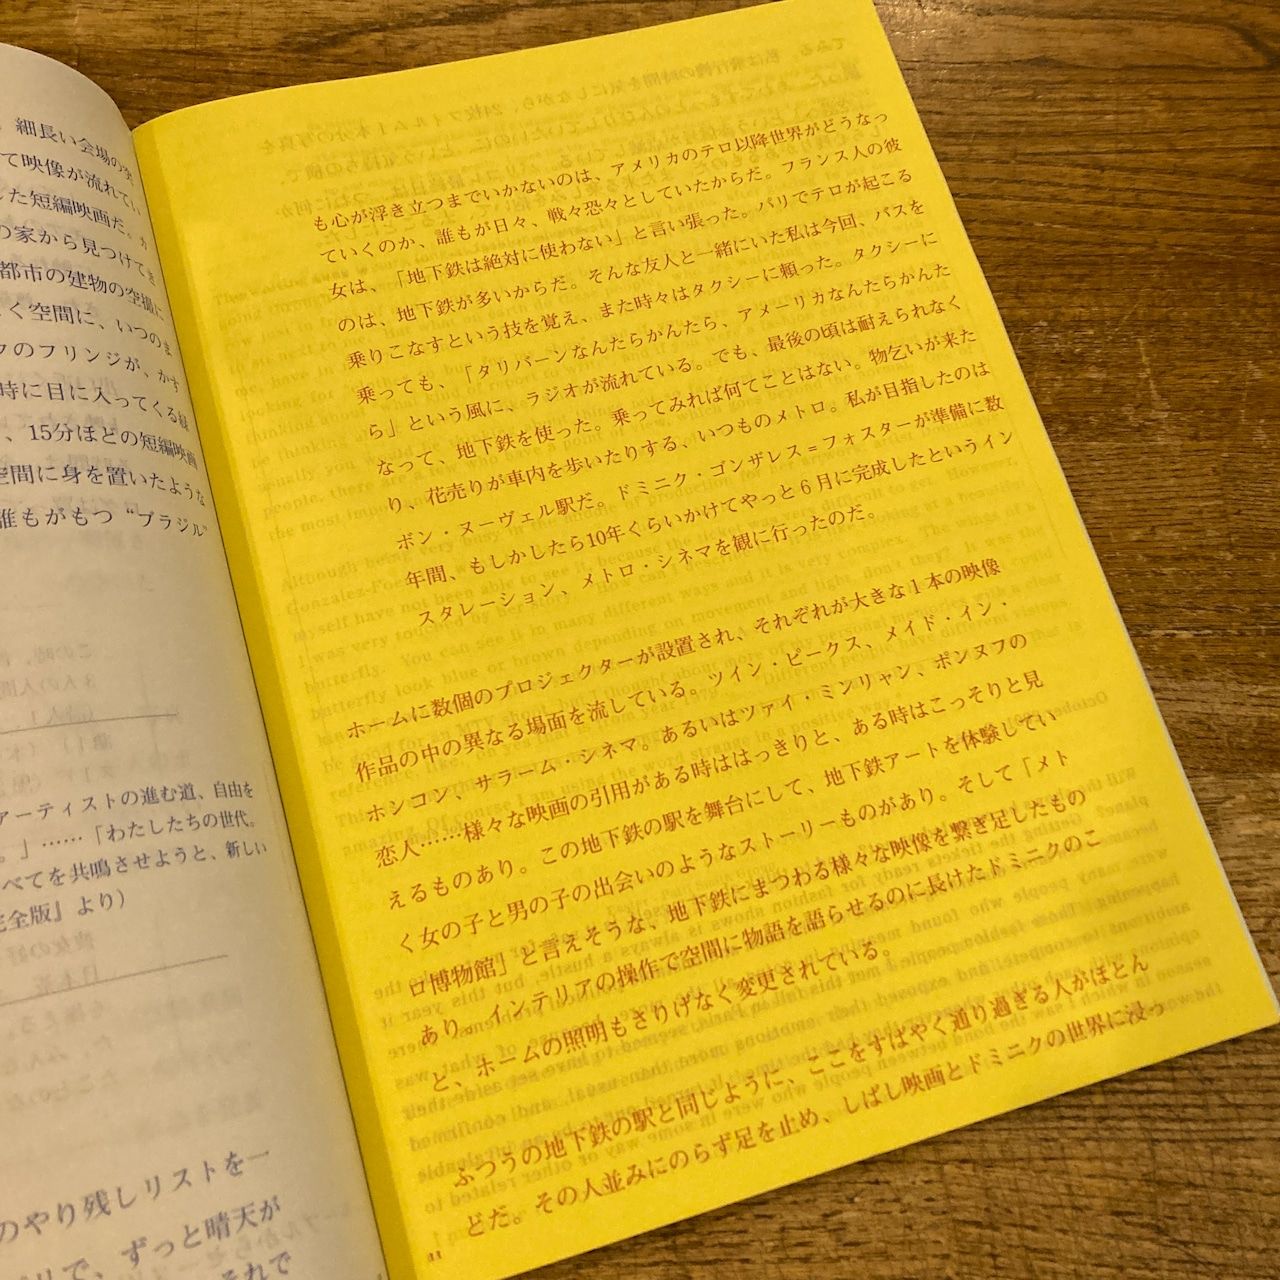 細長い会場の突
て映像が流れてい
した短編映画だ。カ
の家から見つけてき
都市の建物の空撮に
く空間に、いつのま
クのフリンジが、かす
時に目に入ってくる緑
、15分ほどの短編映画
空間に身を置いたような
誰もがもつ“ブラジル”
アーティストの進む道、自由を
。」……「わたしたちの世代。
べてを共鳴させようと、新しい
完全版』より）
のやり残しリストを一
リで、ずっと晴天が
それで
も心が浮き立つまでいかないのは、アメリカのテロ以降世界がどうなっ
ていくのか、誰もが日々、戦々恐々としていたからだ。フランス人の彼
女は、「地下鉄は絶対に使わない」と言い張った。パリでテロが起こる
のは、地下鉄が多いからだ。そんな友人と一緒にいた私は今回、バスを
乗りこなすという技を覚え、また時々はタクシーに頼った。タクシーに
乗っても、「タリバーンなんたらかんたら、アメーリカなんたらかんた
ら」という風に、ラジオが流れている。でも、最後の頃は耐えられなく
なって、地下鉄を使った。乗ってみれば何てことはない。物乞いが来た
り、花売りが車内を歩いたりする、いつものメトロ。私が目指したのは
ボン・ヌーヴェル駅だ。ドミニク・ゴンザレス＝フォスターが準備に数
年間、もしかしたら10年くらいかけてやっと６月に完成したというイン
スタレーション、メトロ・シネマを観に行ったのだ。
ホームに数個のプロジェクターが設置され、それぞれが大きな１本の映像
作品の中の異なる場面を流している。ツイン・ピークス、メイド・イン・
ホンコン、サラーム・シネマ。あるいはツァイ・ミンリャン、ポンヌフの
恋人……様々な映画の引用がある時ははっきりと、ある時はこっそりと見
えるものあり。この地下鉄の駅を舞台にして、地下鉄アートを体験してい
く女の子と男の子の出会いのようなストーリーものがあり。そして「メト
ロ博物館」と言えそうな、地下鉄にまつわる様々な映像を繋ぎ足したもの
あり。インテリアの操作で空間に物語を語らせるのに長けたドミニクのこ
と、ホームの照明もさりげなく変更されている。
ふつうの地下鉄の駅と同じように、ここをすばやく通り過ぎる人がほとん
どだ。その人並みにのらず足を止め、しばし映画とドミニクの世界に浸っ